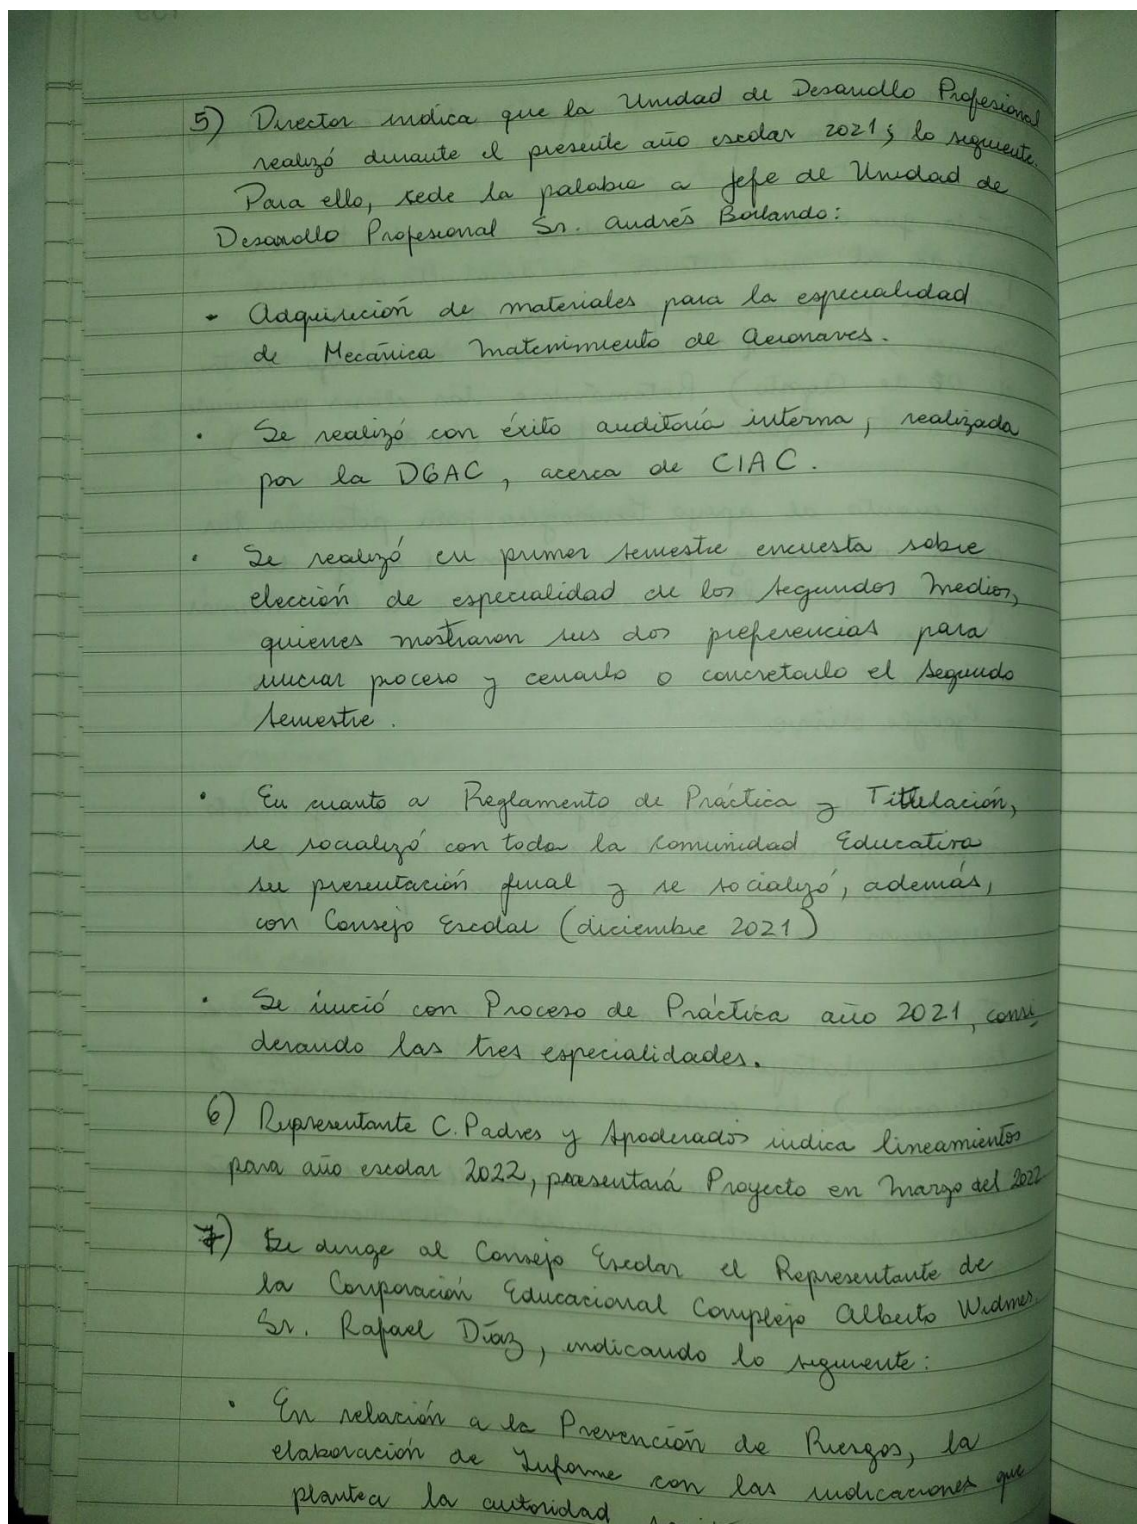 5) Director indica que la Unidad de Desarrollo Profesional
realizó durante el presente año escolar 2021; lo siguiente.
Para ello, sede la palabra a Jefe de Unidad de
Desarrollo Profesional Sr. Andrés Borlando:
- Adquisición de materiales para la especialidad
de Mecánica Matenimiento de Aeronaves.
• Se realizó con éxito auditoría interna, realizada
por la DGAC, acerca de CIAC.
• Se realizó en primer semestre encuesta sobre
elección de especialidad de los Segundos Medios,
quienes mostraron sus dos preferencias para
iniciar proceso y cerrarlo o concretarlo el Segundo
Semestre.
• En cuanto a Reglamento de Práctica y Titulación,
se socializó con toda la Comunidad Educativa
su presentación final y se socializó, además,
con Consejo Escolar (diciembre 2021)
• Se inició con Proceso de Práctica año 2021, consi-
derando las tres especialidades.
6) Representante C. Padres y Apoderados indica lineamientos
para año escolar 2022, presentará Proyecto en Marzo del 2022
7) Se dirige al Consejo Escolar el Representante de
la Corporación Educacional Complejo Alberto Widmer
Sr. Rafael Díaz, indicando lo siguiente:
• En relación a la Prevención de Riesgos, la
elaboración de Informe con las indicaciones que
plantea la autoridad